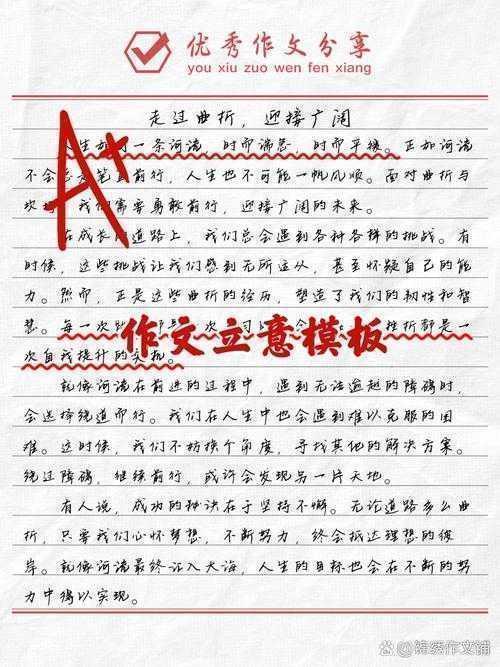 优秀作文分享
you xiu zuo wen fen xiang
走过曲折，迎接广阔
A+
人生如同一条河流，时而湍急，时而平缓。正如河流
不会总是笔直前行，人生也不可能一帆风顺。面对曲折与
坎，我们需要勇敢前行，迎接广阔的未来。
在成长的道路上，我们总会遇到各种各样的挑战。有
时候，这些挑战让我们感到无所适从，甚至怀疑自己的能
力。然而，正是这些曲折的经历，塑造了我们的韧性和智
慧。每一次 是一次 习的 挫折都是一
作文立意模板
次自我提升的
就像河流在前进的过程中，遇到无法逾越的障碍时，
会选择绕道而行。我们在人生中也会遇到难以克服的困
难。这时候，我们不妨换个角度，寻找其他的解决方案。
绕过障碍，继续前行，或许会发现另一片天地。
有人说，成功的秘诀在于坚持不懈。无论道路多么曲
折，只要我们心怀梦想，不断努力，终会抵达理想的彼
岸。就像河流最终汇入大海，人生的目标也会在不断的努
力中得以实现。
锦绣作文铺